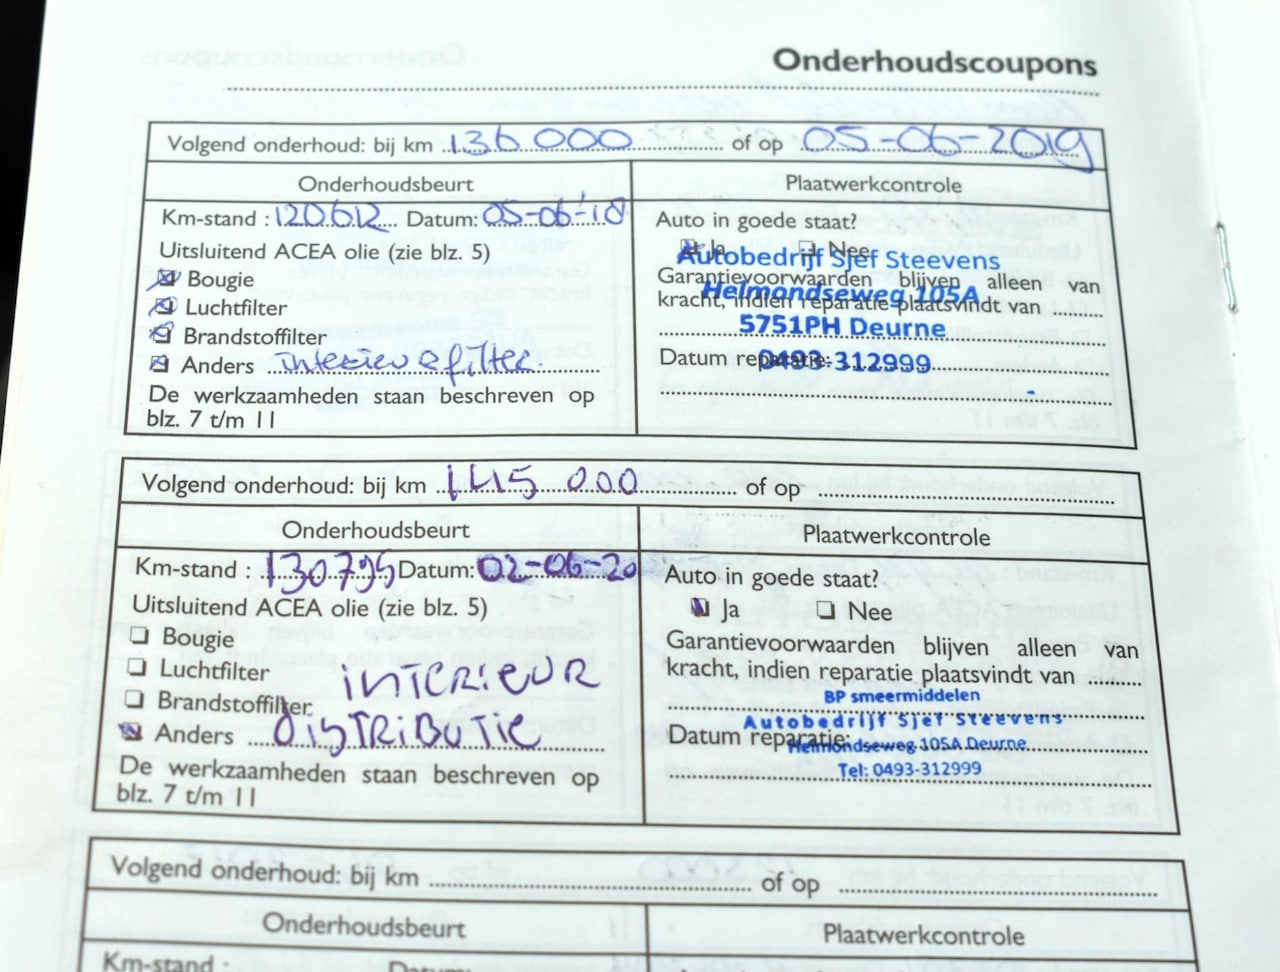 Onderhoudscoupons
Volgend onderhoud: bij km 136.000 of op 05-06-2019
Onderhoudsbeurt
Plaatwerkcontrole
Km-stand : 120612 Datum: 05-06-'18
Auto in goede staat?
Uitsluitend ACEA olie (zie blz. 5)
Ja Nee
Autobedrijf Sjef Steevens
Bougie
Garantievoorwaarden blijven alleen van
Helmondseweg 105A
Luchtfilter
kracht, indien reparatie plaatsvindt van
5751PH Deurne
Brandstoffilter
Datum reparatie:
0493-312999
Anders interieurfilter.
De werkzaamheden staan beschreven op
blz. 7 t/m 11
Volgend onderhoud: bij km 145.000 of op
Onderhoudsbeurt
Plaatwerkcontrole
Km-stand : 130795 Datum: 02-06-20
Auto in goede staat?
Uitsluitend ACEA olie (zie blz. 5)
Ja Nee
Bougie
Garantievoorwaarden blijven alleen van
Luchtfilter
kracht, indien reparatie plaatsvindt van
INTERIEUR
BP smeermiddelen
Brandstoffilter
Autobedrijf Sjef Steevens
Anders DISTRIBUTIE
Datum reparatie:
Helmondseweg 105A Deurne
Tel: 0493-312999
De werkzaamheden staan beschreven op
blz. 7 t/m 11
Volgend onderhoud: bij km of op
Onderhoudsbeurt
Plaatwerkcontrole
Km-stand :
Datum: